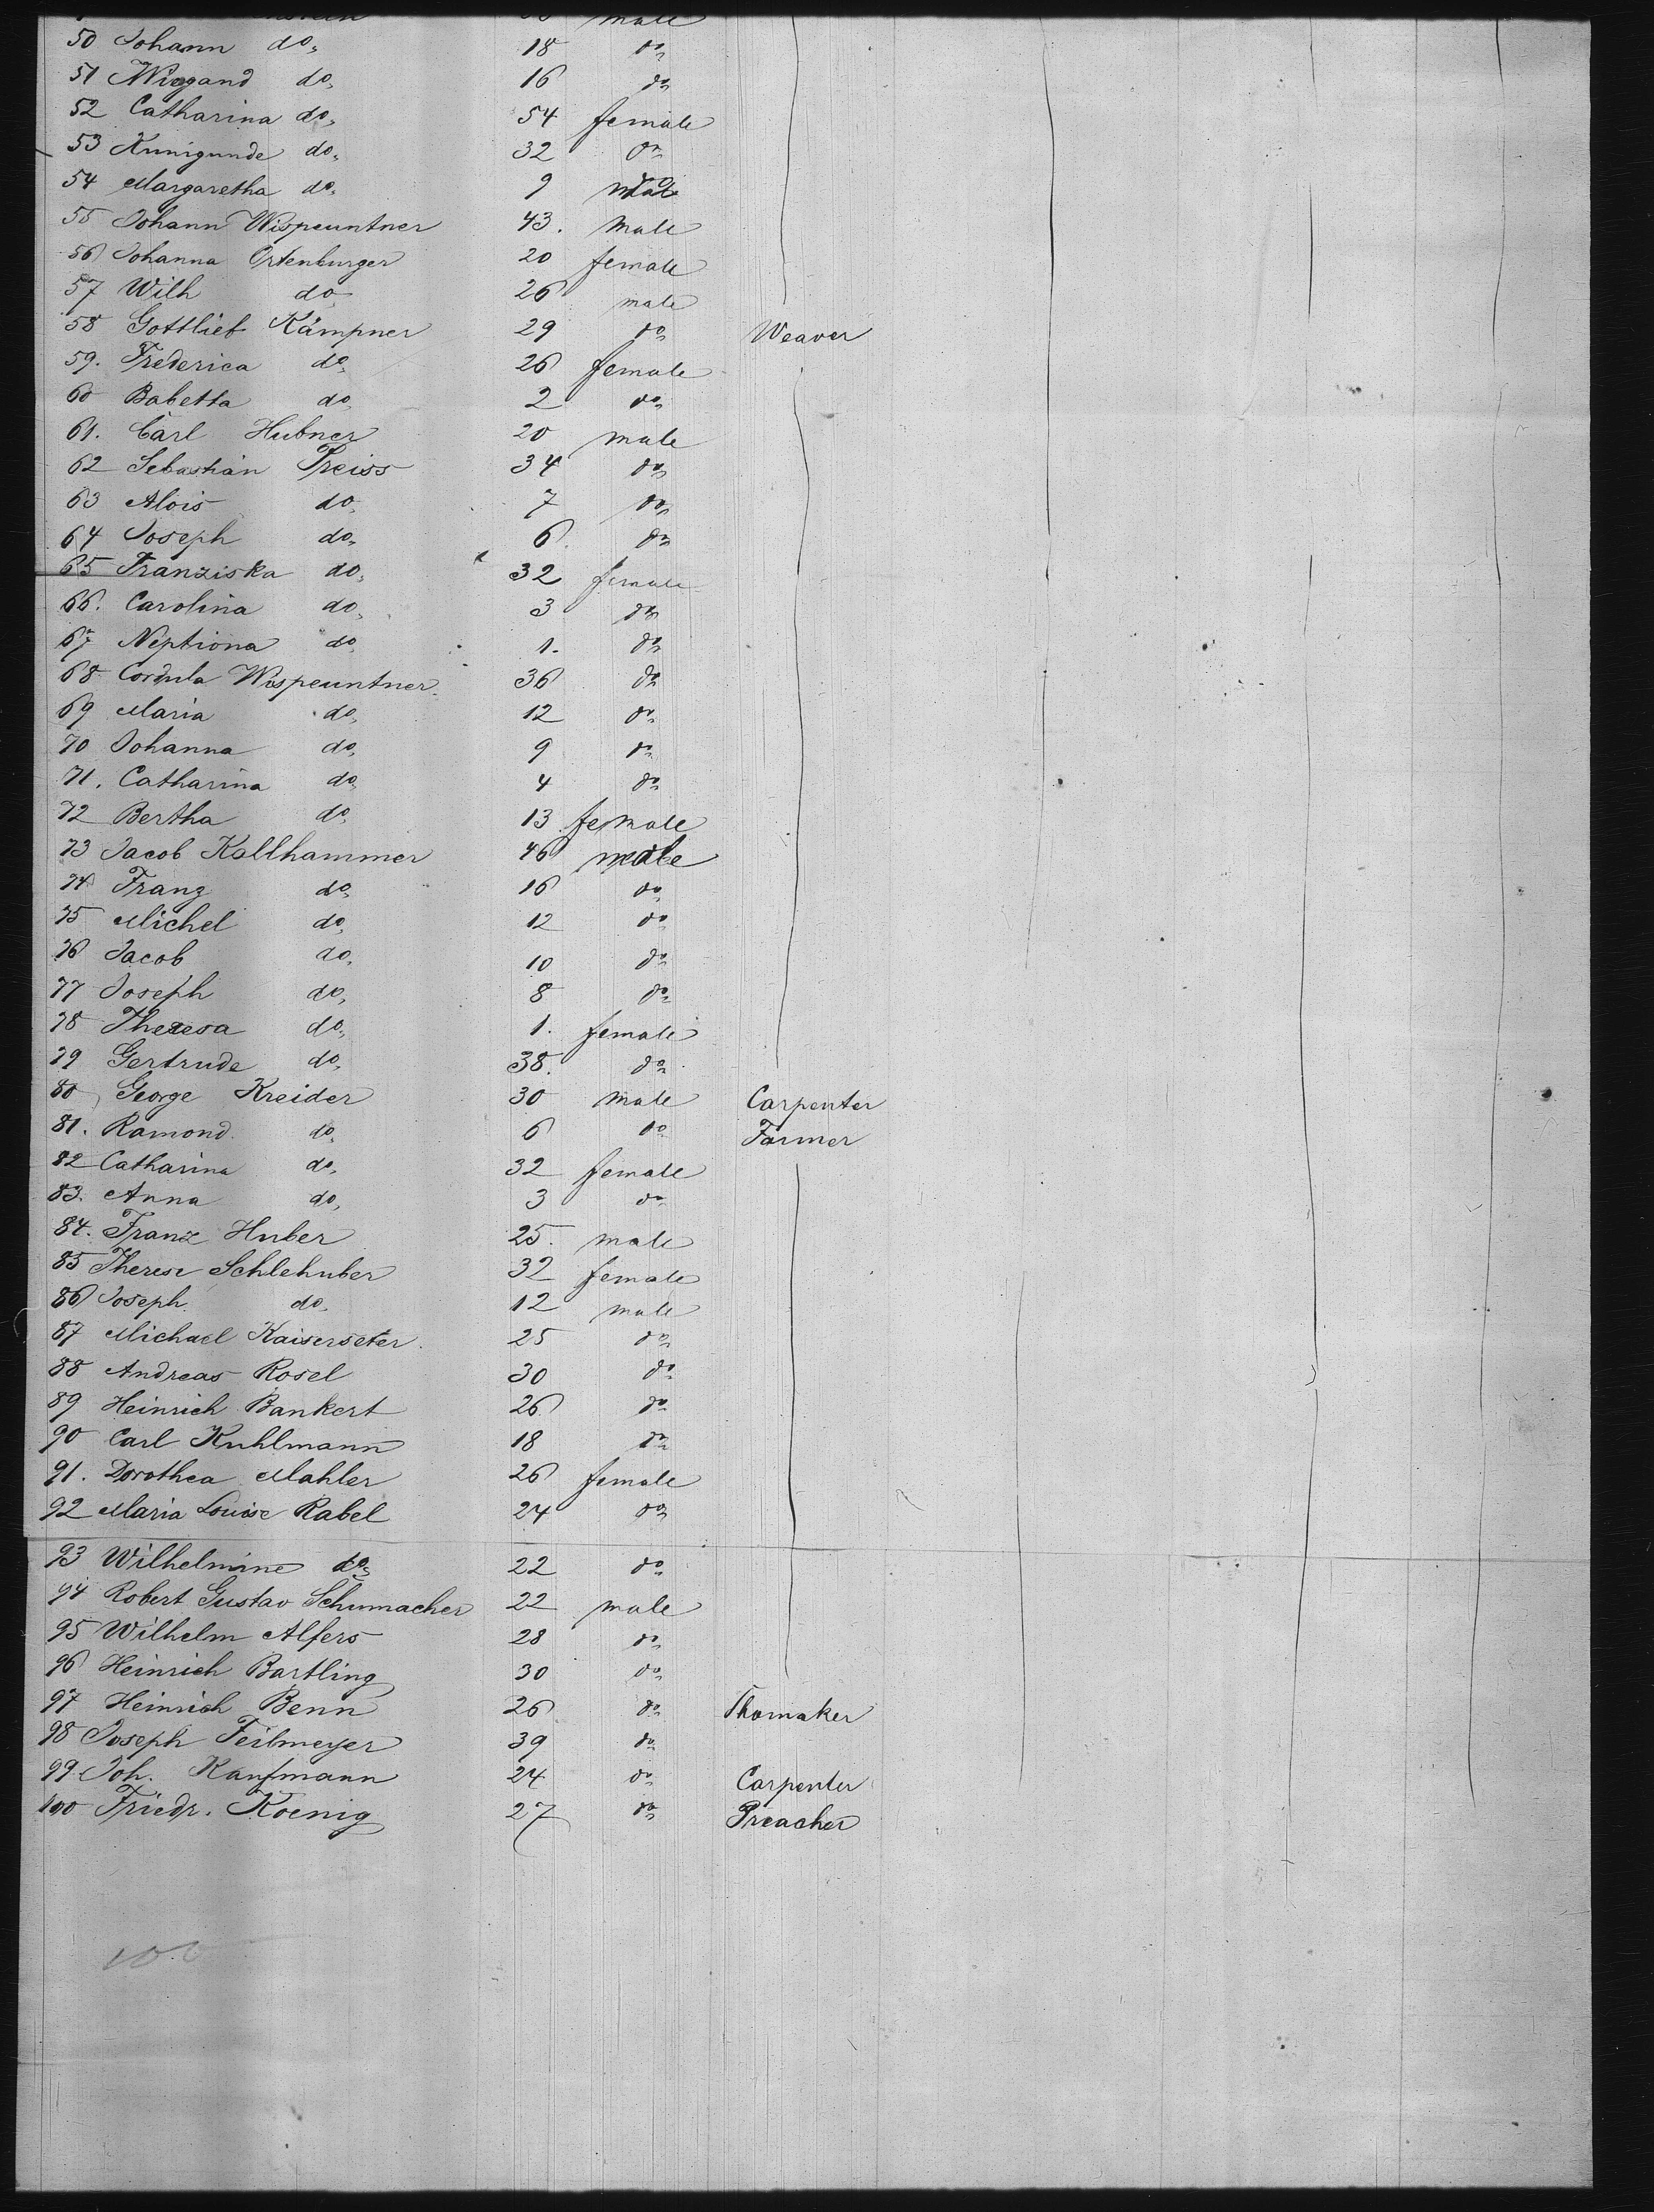 male
50 Johann do. 18 do.
51 Wiegand do. 16 do.
52 Catharina do. 54 female
53 Kunigunde do. 32 do.
54 Margaretha do. 9
55 Johann Wispeuntner 43. male
56 Johanna Ortenburger 20 female
57 Wilh do 26 male
58 Gottlieb Kämpner 29 do. Weaver
59. Frederica do. 26 female
60 Babetta do. 2 do.
61. Carl Hubner 20 male
62 Sebastian Preiss 34 do.
63 Alois do. 7 do.
64 Joseph do. 6. do.
65 Franziska do. 32 female
66. Carolina do. 3 do.
67 Neptiona do. 1. do.
68 Cordula Wispeuntner. 36 do.
69 Maria do. 12 do.
70 Johanna do. 9 do.
71. Catharina do. 4 do.
72 Bertha do. 13 female
73 Jacob Kallhammer 46 male
74 Franz do. 16 do.
75 Michel do. 12 do.
76 Jacob do. 10 do.
77 Joseph do. 8 do.
78 Theresa do. 1. female
79 Gertrude do. 38. do.
80 George Kreider 30 male Carpenter
81. Ramond. do. 6 do. Farmer
82 Catharina do. 32 female
83. Anna do. 3 do.
84. Franz Huber 25. male
85 Therese Schlehuber 32 female
86 Joseph. do. 12 male
87 Michael Kaiserseter. 25 do.
88 Andreas Rosel 30 do.
89 Heinrich Bankert 26 do.
90 Carl Kuhlmann 18 do.
91. Dorothea Mahler 26 female
92 Maria Louise Rabel 24 do.
93 Wilhelmine do. 22 do.
94 Robert Gustav Schumacher 22 male
95 Wilhelm Alfers 28 do.
96 Heinrich Bartling 30 do.
97 Heinrich Benn 26 do. Shomaker
98 Joseph Feilmeyer 39 do.
99 Joh. Kaufmann 24 do. Carpenter
100 Friedr. Koenig 27 do. Preacher
100